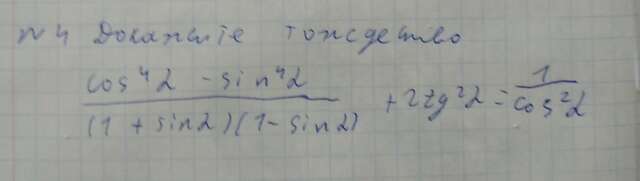 №4 Докажите тождество
cos⁴α - sin⁴α / (1 + sinα)(1 - sinα) + 2tg²α = 1 / cos²α